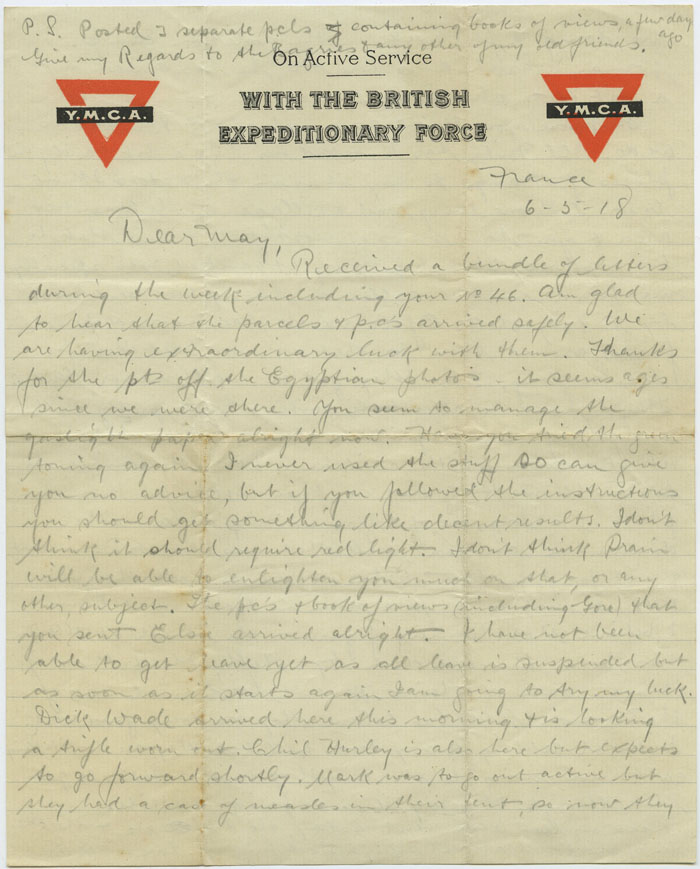 P.S. Posted 2 separate pcls containing books of views, a few days ago
Give my Regards to the & any other of my old friends.
On Active Service
WITH THE BRITISH
EXPEDITIONARY FORCE
Y.M.C.A.
Y.M.C.A.
France
6-5-18
Dear May,
Received a bundle of letters
during the week including your No 46. Am glad
to hear that the parcels & p.c's arrived safely. We
are having extraordinary luck with them. Thanks
for the pts off the Egyptian photos - it seems ages
since we were there. You seem to manage the
gaslight paper alright now. Have you tried the green
toning again. I never used the stuff so can give
you no advice, but if you followed the instructions
you should get something like decent results. I don't
think it should require red light. I don't think Prain
will be able to enlighten you much on that, or any
other subject. The p.c's & book of views (including Gore) that
you sent Elsie arrived alright. I have not been
able to get leave yet as all leave is suspended but
as soon as it starts again I am going to try my luck.
Dick Wade arrived here this morning & is looking
a trifle worn out. Phil Hurley is also here but expects
to go forward shortly. Mark was to go out active but
they had a case of measles in their tent, so now they